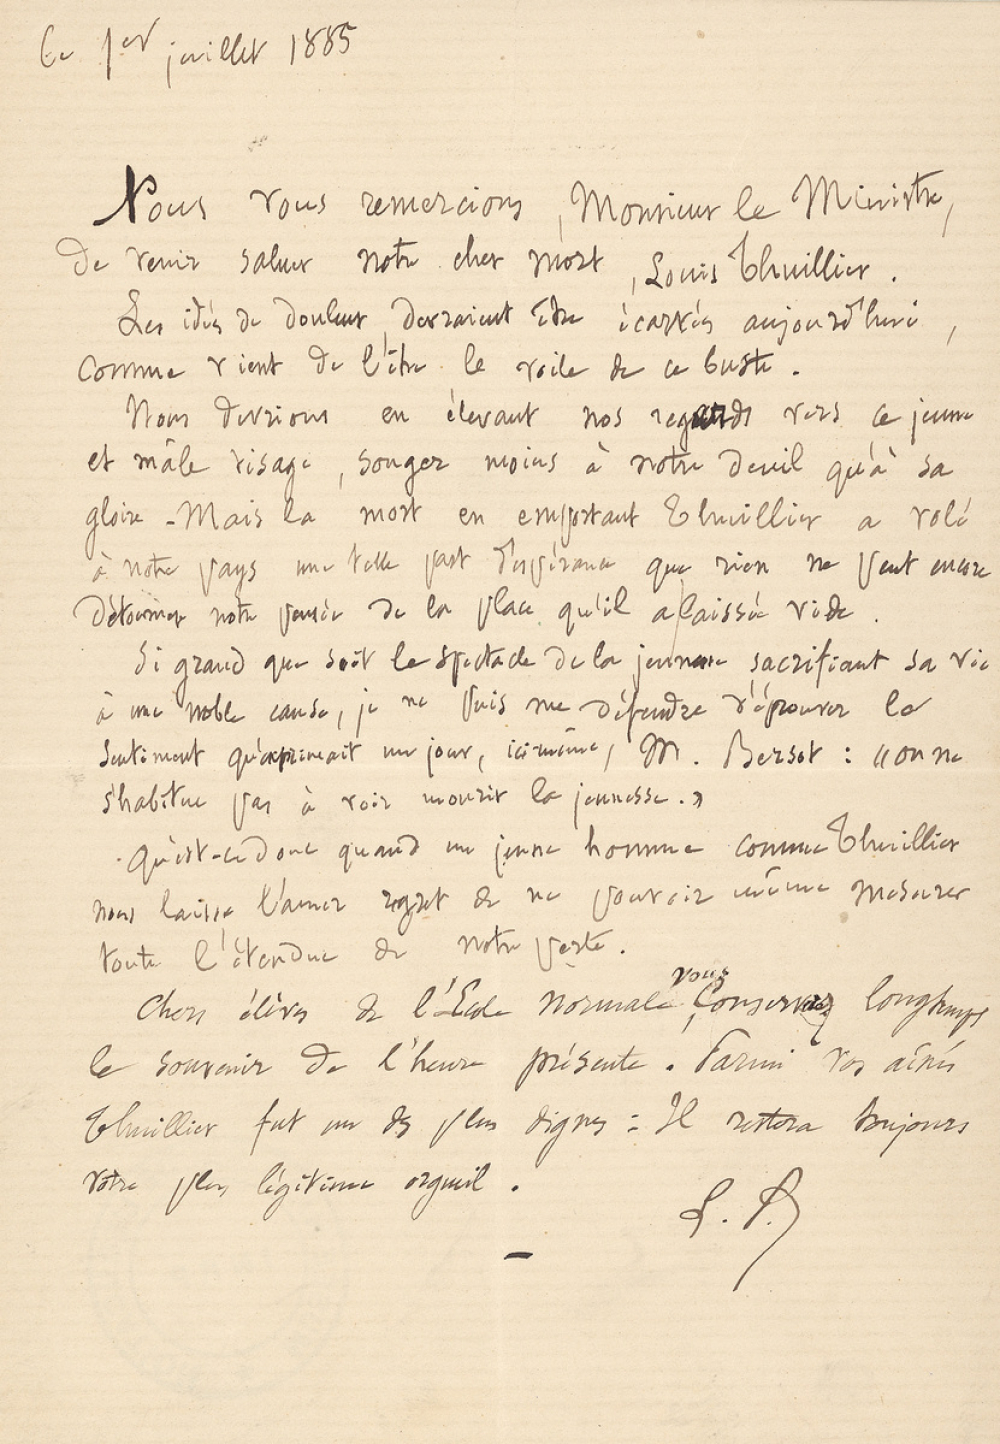 Ce 1er juillet 1885
Nous vous remercions, Monsieur le Ministre,
de venir saluer notre cher mort, Louis Thuillier.
Les idées de douleur devraient être écartées aujourd'hui,
comme vient de l'être le voile de ce buste.
Nous devrions en élevant nos regards vers ce jeune
et mâle visage, songer moins à notre deuil qu'à sa
gloire - Mais la mort en emportant Thuillier a volé
à notre pays une telle part d'espérance que rien ne peut encore
détourner notre pensée de la place qu'il a laissée vide.
Si grand que soit le spectacle de la jeunesse sacrifiant sa vie
à une noble cause, je ne puis me défendre d'éprouver le
sentiment qu'exprimait un jour, ici-même, M. Bersot : "on ne
s'habitue pas à voir mourir la jeunesse."
Qu'est-ce donc quand un jeune homme comme Thuillier
nous laisse l'amer regret de ne pouvoir même mesurer
toute l'étendue de notre perte.
vous
Chers élèves de l'École normale, conservez longtemps
le souvenir de l'heure présente. Parmi vos aînés
Thuillier fut un des plus dignes : Il restera toujours
votre plus légitime orgueil.
L. P.